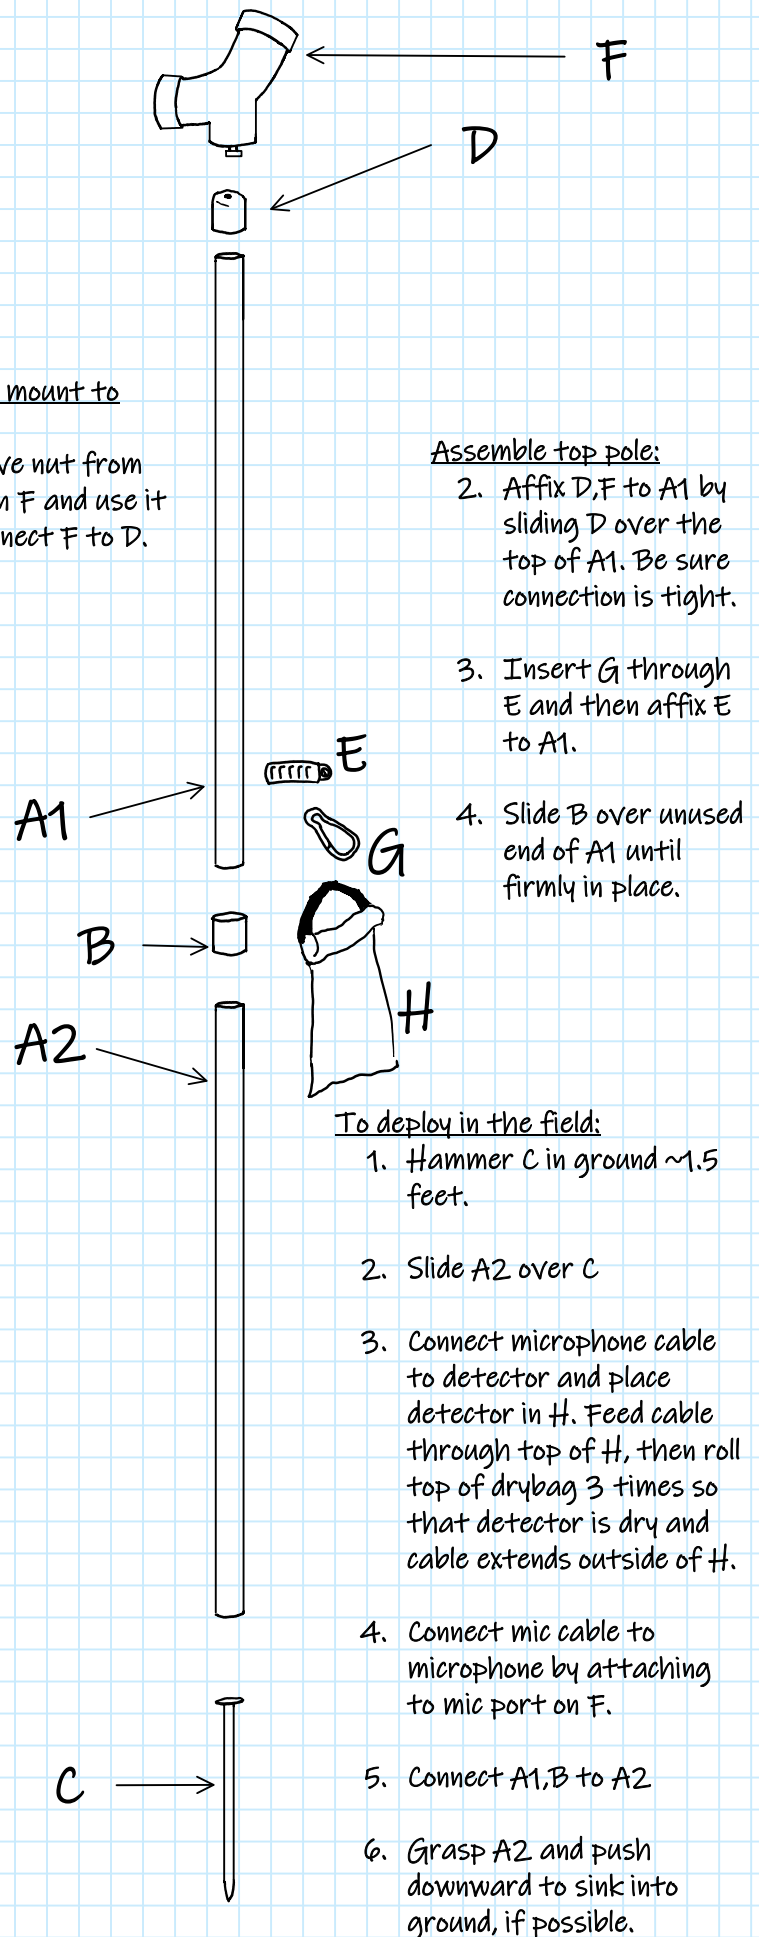 F
D
mount to
ve nut from
F and use it
nect F to D.
Assemble top pole:
2. Affix D,F to A1 by
sliding D over the
top of A1. Be sure
connection is tight.
3. Insert G through
E and then affix E
to A1.
4. Slide B over unused
end of A1 until
firmly in place.
E
A1
G
B
H
A2
To deploy in the field:
1. Hammer C in ground ~1.5
feet.
2. Slide A2 over C
3. Connect microphone cable
to detector and place
detector in H. Feed cable
through top of H, then roll
top of drybag 3 times so
that detector is dry and
cable extends outside of H.
4. Connect mic cable to
microphone by attaching
to mic port on F.
5. Connect A1,B to A2
6. Grasp A2 and push
downward to sink into
ground, if possible.
C